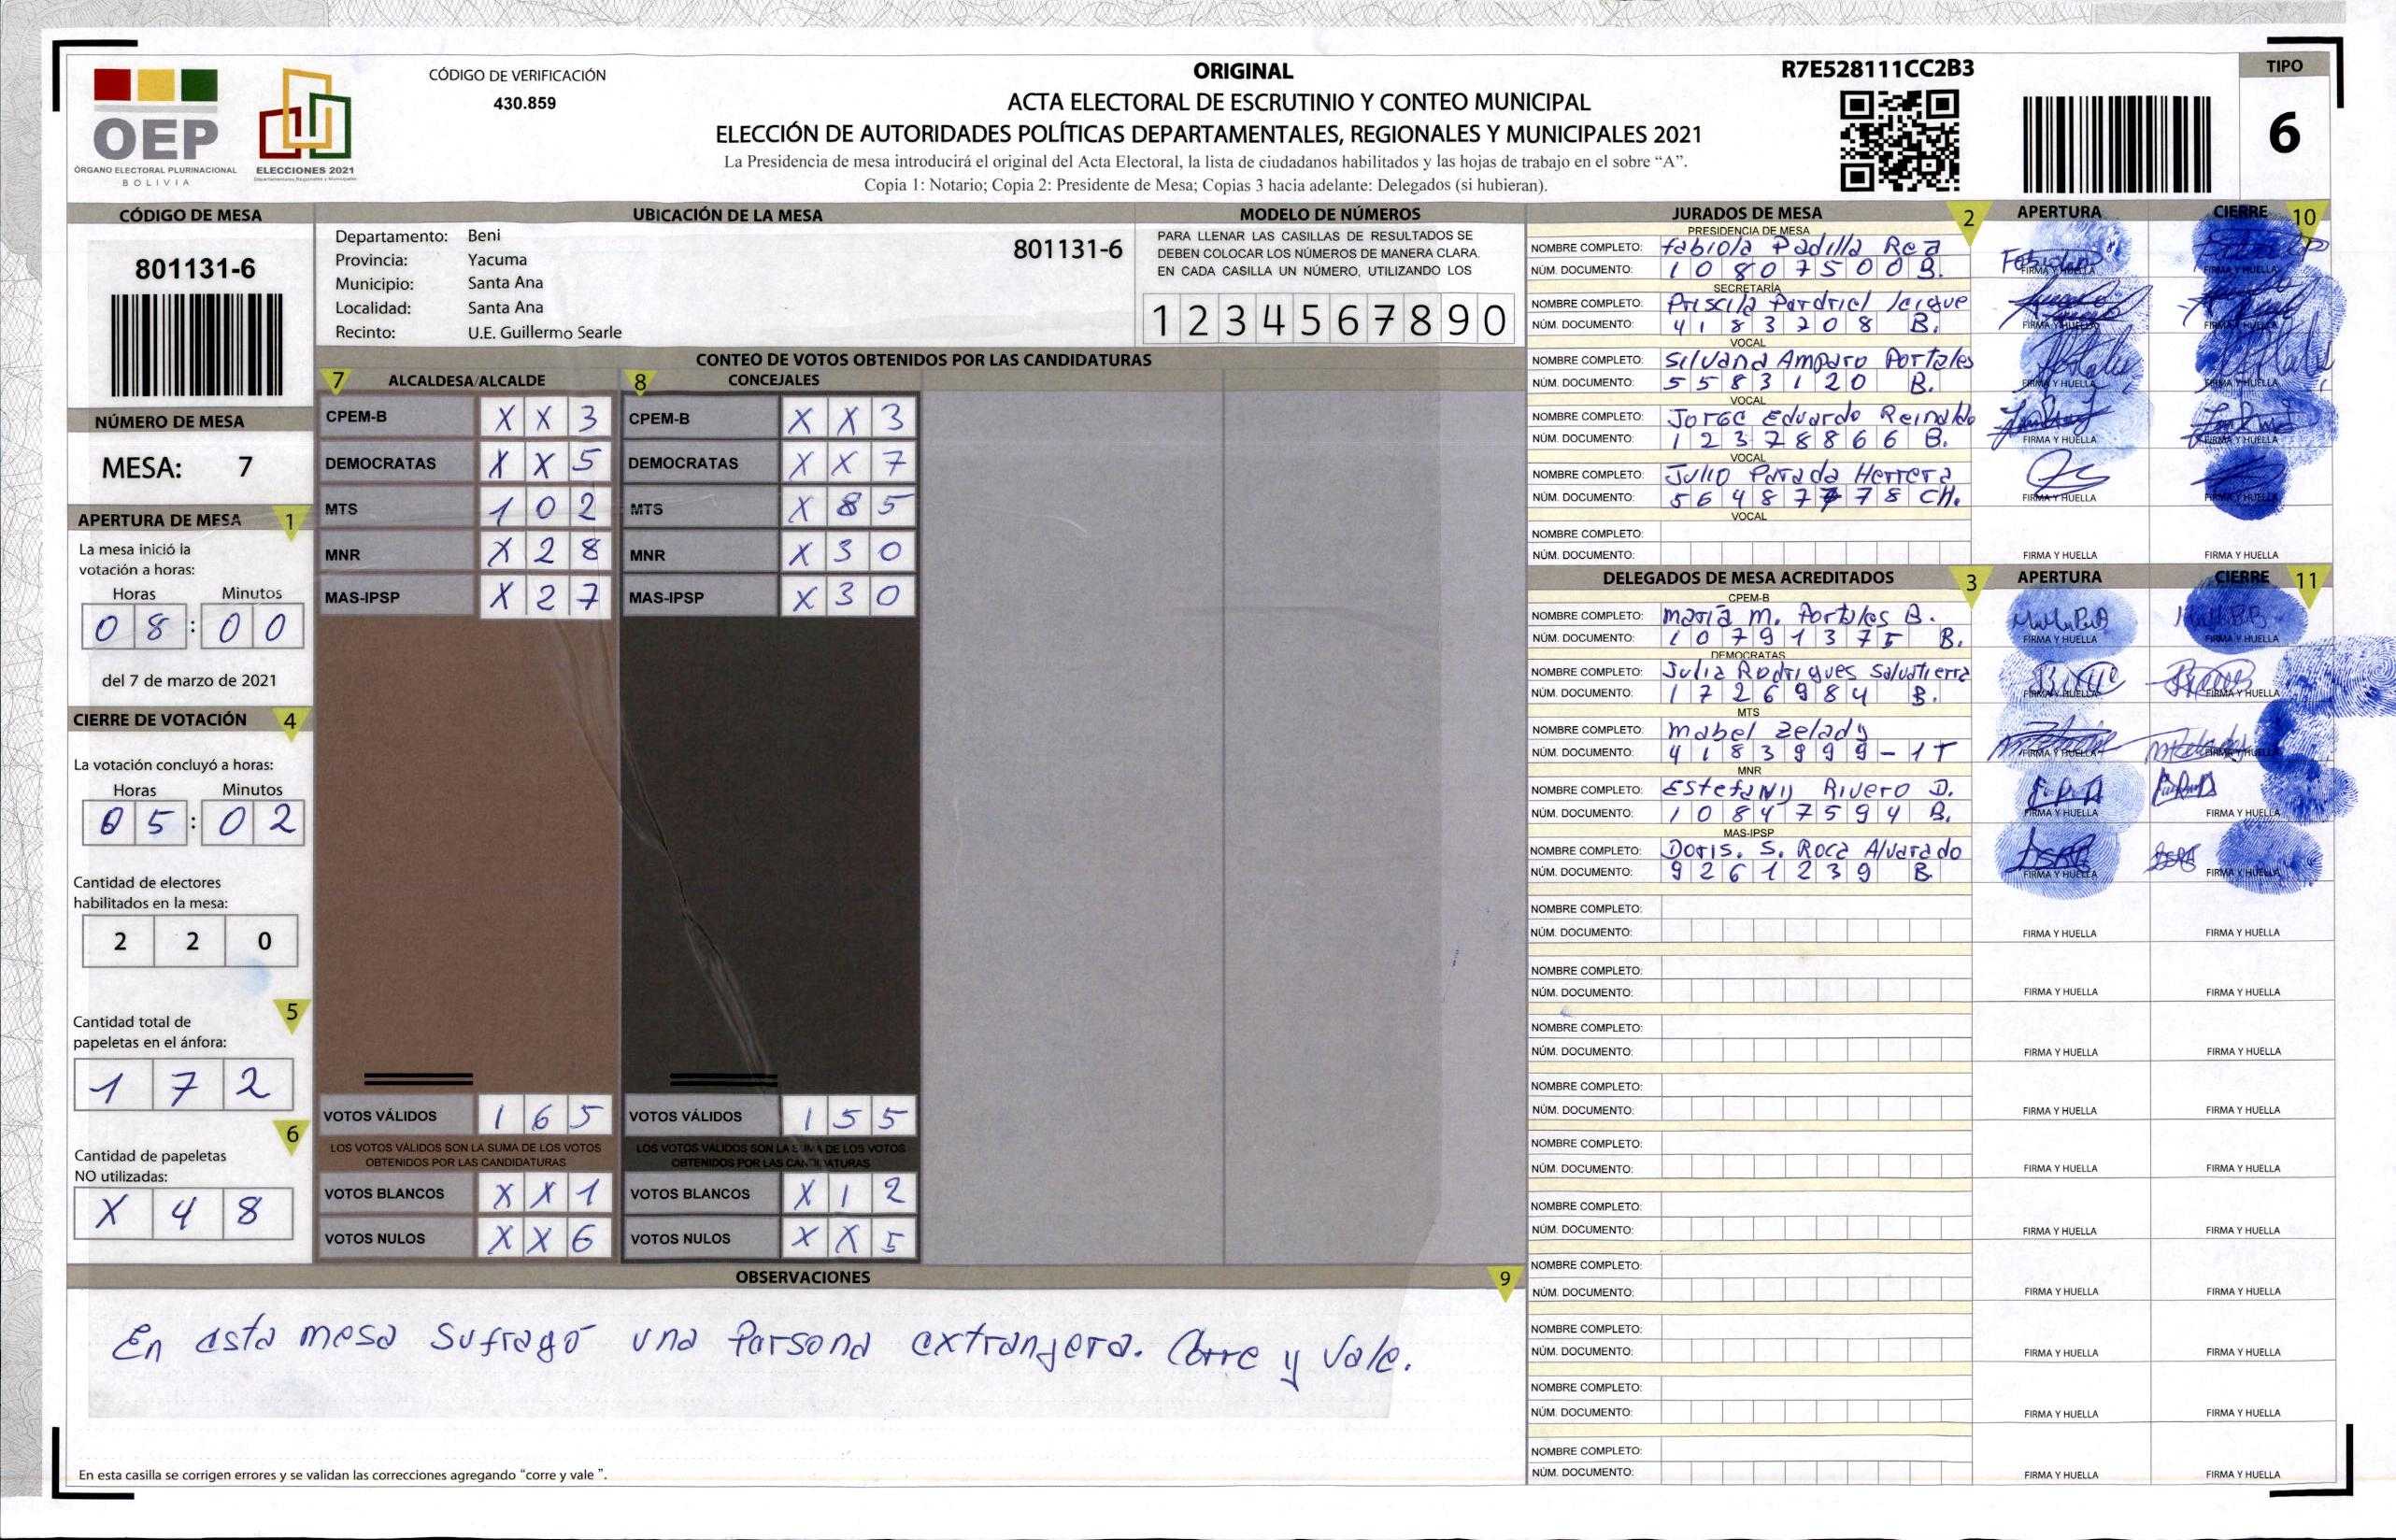 ORIGINAL
ACTA ELECTORAL DE ESCRUTINIO Y CONTEO MUNICIPAL
ELECCIÓN DE AUTORIDADES POLÍTICAS DEPARTAMENTALES, REGIONALES Y MUNICIPALES 2021
La Presidencia de mesa introducirá el original del Acta Electoral, la lista de ciudadanos habilitados y las hojas de trabajo en el sobre “A”.
Copia 1: Notario; Copia 2: Presidente de Mesa; Copias 3 hacia adelante: Delegados (si hubieran).
OEP
ÓRGANO ELECTORAL PLURINACIONAL
BOLIVIA
ELECCIONES 2021
Departamentales, Regionales y Municipales
CÓDIGO DE VERIFICACIÓN
430.859
R7E528111CC2B3
TIPO
6
CÓDIGO DE MESA
801131-6
NÚMERO DE MESA
MESA: 7
APERTURA DE MESA 1
La mesa inició la
votación a horas:
Horas Minutos
08:00
del 7 de marzo de 2021
CIERRE DE VOTACIÓN 4
La votación concluyó a horas:
Horas Minutos
05:02
Cantidad de electores
habilitados en la mesa:
2 2 0
5
Cantidad total de
papeletas en el ánfora:
1 7 2
6
Cantidad de papeletas
NO utilizadas:
X 4 8
UBICACIÓN DE LA MESA
Departamento: Beni
Provincia: Yacuma
Municipio: Santa Ana
Localidad: Santa Ana
Recinto: U.E. Guillermo Searle
801131-6
MODELO DE NÚMEROS
PARA LLENAR LAS CASILLAS DE RESULTADOS SE
DEBEN COLOCAR LOS NÚMEROS DE MANERA CLARA.
EN CADA CASILLA UN NÚMERO, UTILIZANDO LOS
1 2 3 4 5 6 7 8 9 0
CONTEO DE VOTOS OBTENIDOS POR LAS CANDIDATURAS
7 ALCALDESA/ALCALDE
CPEM-B X X 3
DEMOCRATAS X X 5
MTS 1 0 2
MNR X 2 8
MAS-IPSP X 2 7
VOTOS VÁLIDOS 1 6 5
LOS VOTOS VÁLIDOS SON LA SUMA DE LOS VOTOS
OBTENIDOS POR LAS CANDIDATURAS
VOTOS BLANCOS X X 1
VOTOS NULOS X X 6
8 CONCEJALES
CPEM-B X X 3
DEMOCRATAS X X 7
MTS X 8 5
MNR X 3 0
MAS-IPSP X 3 0
VOTOS VÁLIDOS 1 5 5
LOS VOTOS VÁLIDOS SON LA SUMA DE LOS VOTOS
OBTENIDOS POR LAS CANDIDATURAS
VOTOS BLANCOS X 1 2
VOTOS NULOS X X 5
OBSERVACIONES 9
En esta mesa Sufragó una Persona extranjera. Corre y Vale.
En esta casilla se corrigen errores y se validan las correcciones agregando “corre y vale ”.
JURADOS DE MESA 2 APERTURA CIERRE 10
PRESIDENCIA DE MESA
NOMBRE COMPLETO: fabiola Padilla Rea
NÚM. DOCUMENTO: 10807500 B. FIRMA Y HUELLA FIRMA Y HUELLA
SECRETARÍA
NOMBRE COMPLETO: Priscila Pardriel leigue
NÚM. DOCUMENTO: 4183208 B. FIRMA Y HUELLA FIRMA Y HUELLA
VOCAL
NOMBRE COMPLETO: Silvana Amparo Portales
NÚM. DOCUMENTO: 5583120 B. FIRMA Y HUELLA FIRMA Y HUELLA
VOCAL
NOMBRE COMPLETO: Jorge Eduardo Reinaldo
NÚM. DOCUMENTO: 12378866 B. FIRMA Y HUELLA FIRMA Y HUELLA
VOCAL
NOMBRE COMPLETO: Julio Parada Herrera
NÚM. DOCUMENTO: 56487778 CH. FIRMA Y HUELLA FIRMA Y HUELLA
VOCAL
NOMBRE COMPLETO:
NÚM. DOCUMENTO: FIRMA Y HUELLA FIRMA Y HUELLA
DELEGADOS DE MESA ACREDITADOS 3 APERTURA CIERRE 11
CPEM-B
NOMBRE COMPLETO: María M. Portales B.
NÚM. DOCUMENTO: 10791375 B. FIRMA Y HUELLA FIRMA Y HUELLA
DEMOCRATAS
NOMBRE COMPLETO: Julia Rodrigues Salvatierra
NÚM. DOCUMENTO: 1726984 B. FIRMA Y HUELLA FIRMA Y HUELLA
MTS
NOMBRE COMPLETO: Mabel Zelady
NÚM. DOCUMENTO: 4183999-1T FIRMA Y HUELLA FIRMA Y HUELLA
MNR
NOMBRE COMPLETO: Estefany Rivero D.
NÚM. DOCUMENTO: 10847594 B. FIRMA Y HUELLA FIRMA Y HUELLA
MAS-IPSP
NOMBRE COMPLETO: Doris. S. Roca Alvarado
NÚM. DOCUMENTO: 9261239 B FIRMA Y HUELLA FIRMA Y HUELLA
NOMBRE COMPLETO:
NÚM. DOCUMENTO: FIRMA Y HUELLA FIRMA Y HUELLA
NOMBRE COMPLETO:
NÚM. DOCUMENTO: FIRMA Y HUELLA FIRMA Y HUELLA
NOMBRE COMPLETO:
NÚM. DOCUMENTO: FIRMA Y HUELLA FIRMA Y HUELLA
NOMBRE COMPLETO:
NÚM. DOCUMENTO: FIRMA Y HUELLA FIRMA Y HUELLA
NOMBRE COMPLETO:
NÚM. DOCUMENTO: FIRMA Y HUELLA FIRMA Y HUELLA
NOMBRE COMPLETO:
NÚM. DOCUMENTO: FIRMA Y HUELLA FIRMA Y HUELLA
NOMBRE COMPLETO:
NÚM. DOCUMENTO: FIRMA Y HUELLA FIRMA Y HUELLA
NOMBRE COMPLETO:
NÚM. DOCUMENTO: FIRMA Y HUELLA FIRMA Y HUELLA
NOMBRE COMPLETO:
NÚM. DOCUMENTO: FIRMA Y HUELLA FIRMA Y HUELLA
NOMBRE COMPLETO:
NÚM. DOCUMENTO: FIRMA Y HUELLA FIRMA Y HUELLA